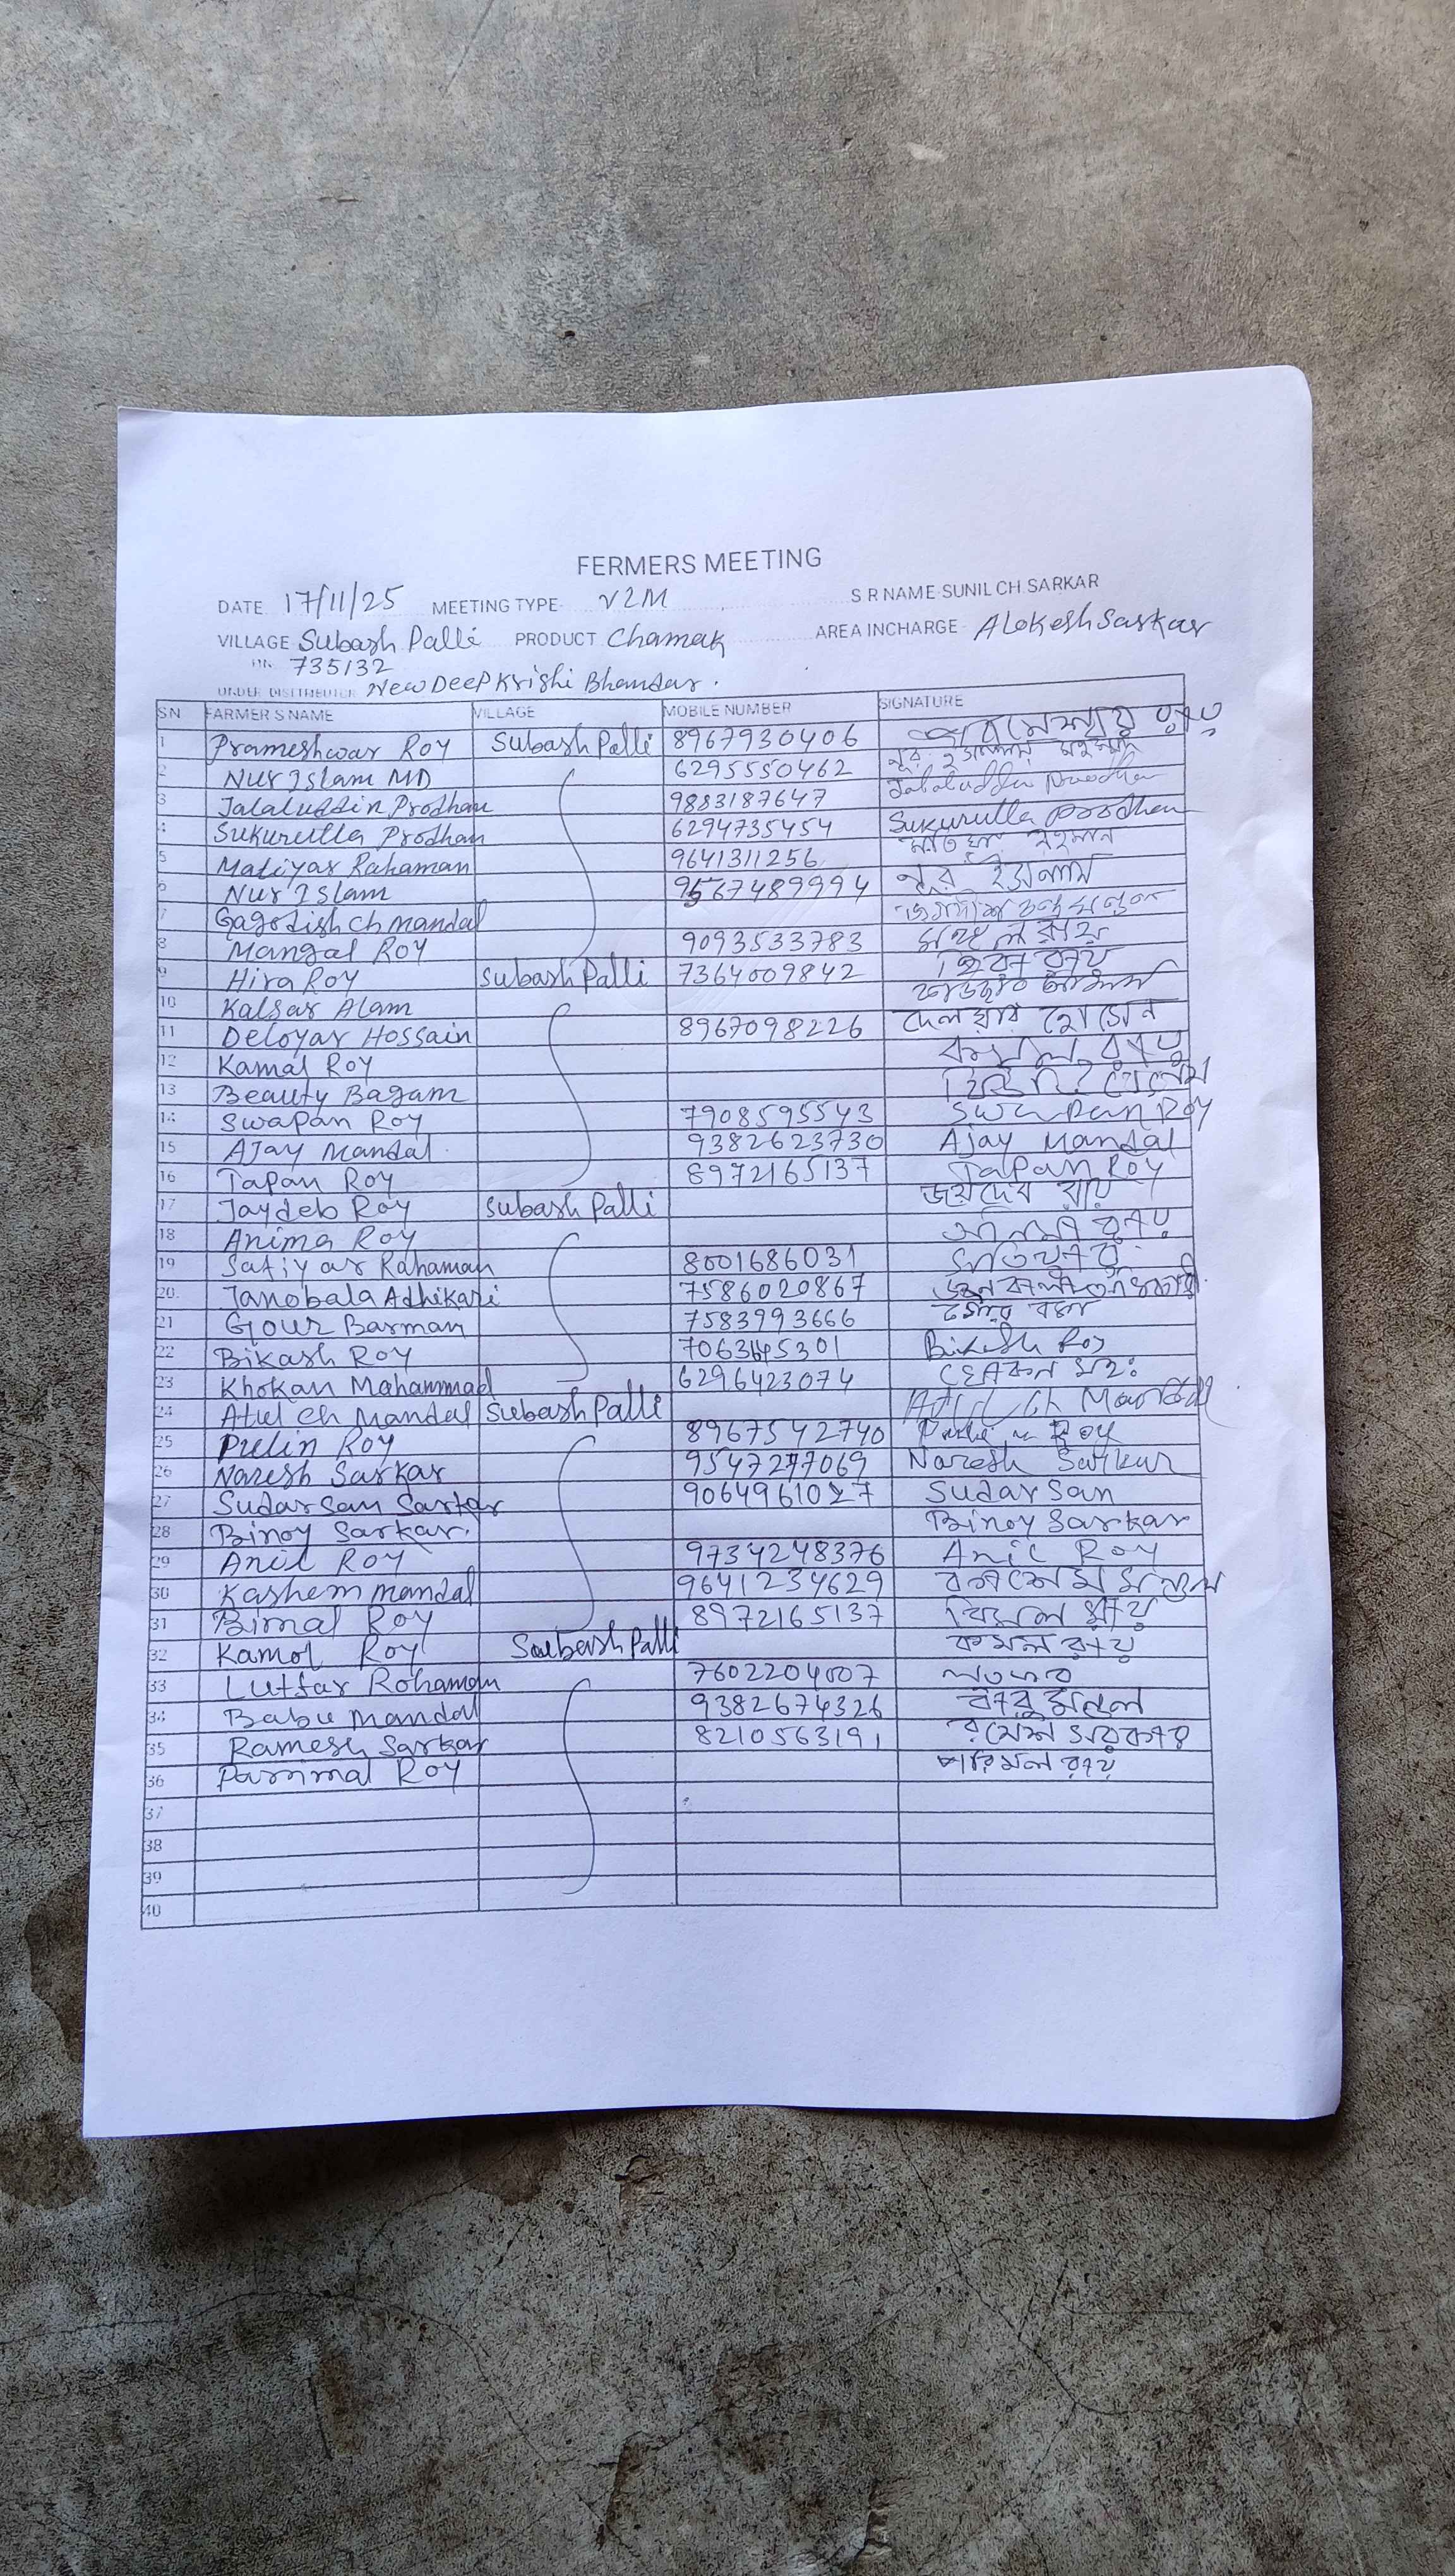 FERMERS MEETING
DATE 17/11/25 MEETING TYPE V2M S R NAME SUNIL CH. SARKAR
VILLAGE Subash Palli PRODUCT Chamak AREA INCHARGE Alokesh Sarkar
735132
UNDER New Deep Krishi Bhandar.
SN FARMER S NAME VILLAGE MOBILE NUMBER SIGNATURE
1 Prameshwar Roy Subash Palli 8967930406
2 Nur Islam MD 6295550462
3 Jalaluddin Prodhan 9883187647 Jalaluddin Prodhan
4 Sukurulla Prodhan 6294735454 Sukurulla Prodhan
5 Matiyar Rahaman 9641311256
6 Nur Islam 9567489994 নুর ইসলাম
7 Gagodish Ch Mandal
8 Mangal Roy 9093533783
9 Hira Roy Subash Palli 7364009842
10 Kalsar Alam
11 Deloyar Hossain 8967098226 দেলয়ার হোসেন
12 Kamal Roy
13 Beauty Bagam
14 Swapan Roy 7908595543 Swapan Roy
15 Ajay Mandal 9382623730 Ajay Mandal
16 Tapan Roy 8972165137 Tapan Roy
17 Jaydeb Roy Subash Palli জয়দেব রায়
18 Anima Roy
19 Satiyar Rahaman 8001686031
20. Janobala Adhikari 7586020867
21 Gour Barman 7583993666
22 Bikash Roy Bikash Roy
23 Khokan Mahammad 6296423074
24 Atul Ch Mandal Subash Palli Atul Ch Mandal
25 Pulin Roy 8967542740 Roy
26 Naresh Sarkar 9547277069 Naresh Sarkar
27 Sudarsan Sarkar 9064961027 Sudarsan
28 Binoy Sarkar. Binoy Sarkar
29 Anil Roy 9734248376 Anil Roy
30 Kashem mandal 9641234629
31 Bimal Roy 8972165137 বিমল রায়
32 Kamol Roy Subash Palli কমল রায়
33 Luttar Rohaman 7602204007
34 Babu Mandal 9382674326
35 Ramesh Sarkar 8210563191 রমেশ সরকার
36 Parimal Roy পরিমল রায়
37
38
39
40